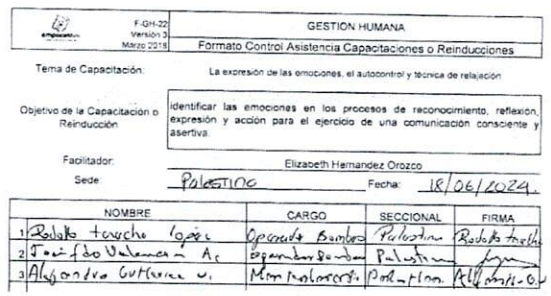 F-GH-22
Versión 3
Marzo 2018
GESTION HUMANA
Formato Control Asistencia Capacitaciones o Reinducciones
Tema de Capacitación: La expresión de las emociones, el autocontrol y técnica de relajación
Objetivo de la Capacitación o Reinducción
identificar las emociones en los procesos de reconocimiento, reflexión,
expresión y acción para el ejercicio de una comunicación consciente y
asertiva.
Facilitador: Elizabeth Hernandez Orozco
Sede: Palestina Fecha: 18/06/2024
NOMBRE CARGO SECCIONAL FIRMA
1 Rodolfo lopez Palestina Rodolfo
2 Valencia A. Palestina
3 Alejandro Gutierrez v. Palestina